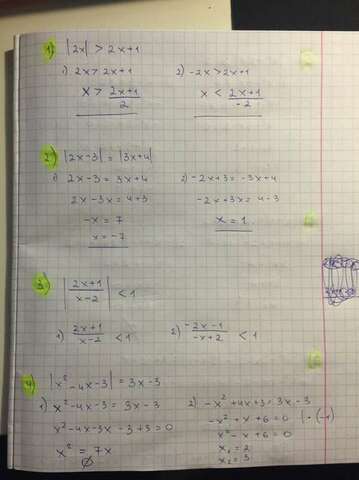 1) |2x| > 2x+1
1) 2x > 2x+1
2) -2x > 2x+1
x > 2x+1/2
x < 2x+1/-2
2) |2x-3| = |3x+4|
1) 2x-3 = 3x+4
2) -2x+3 = -3x+4
2x-3x = 4+3
-2x+3x = 4-3
-x = 7
x = 1
x = -7
3) |2x+1/x-2| < 1
1) 2x+1/x-2 < 1
2) -2x-1/-x+2 < 1
4) |x²-4x-3| = 3x-3
1) x²-4x-3 = 3x-3
2) -x²+4x+3 = 3x-3
x²-4x-3x-3+3=0
-x²+x+6=0 |·(-1)
x² = 7x
x²-x+6=0
∅
x₁=2
x₂=3